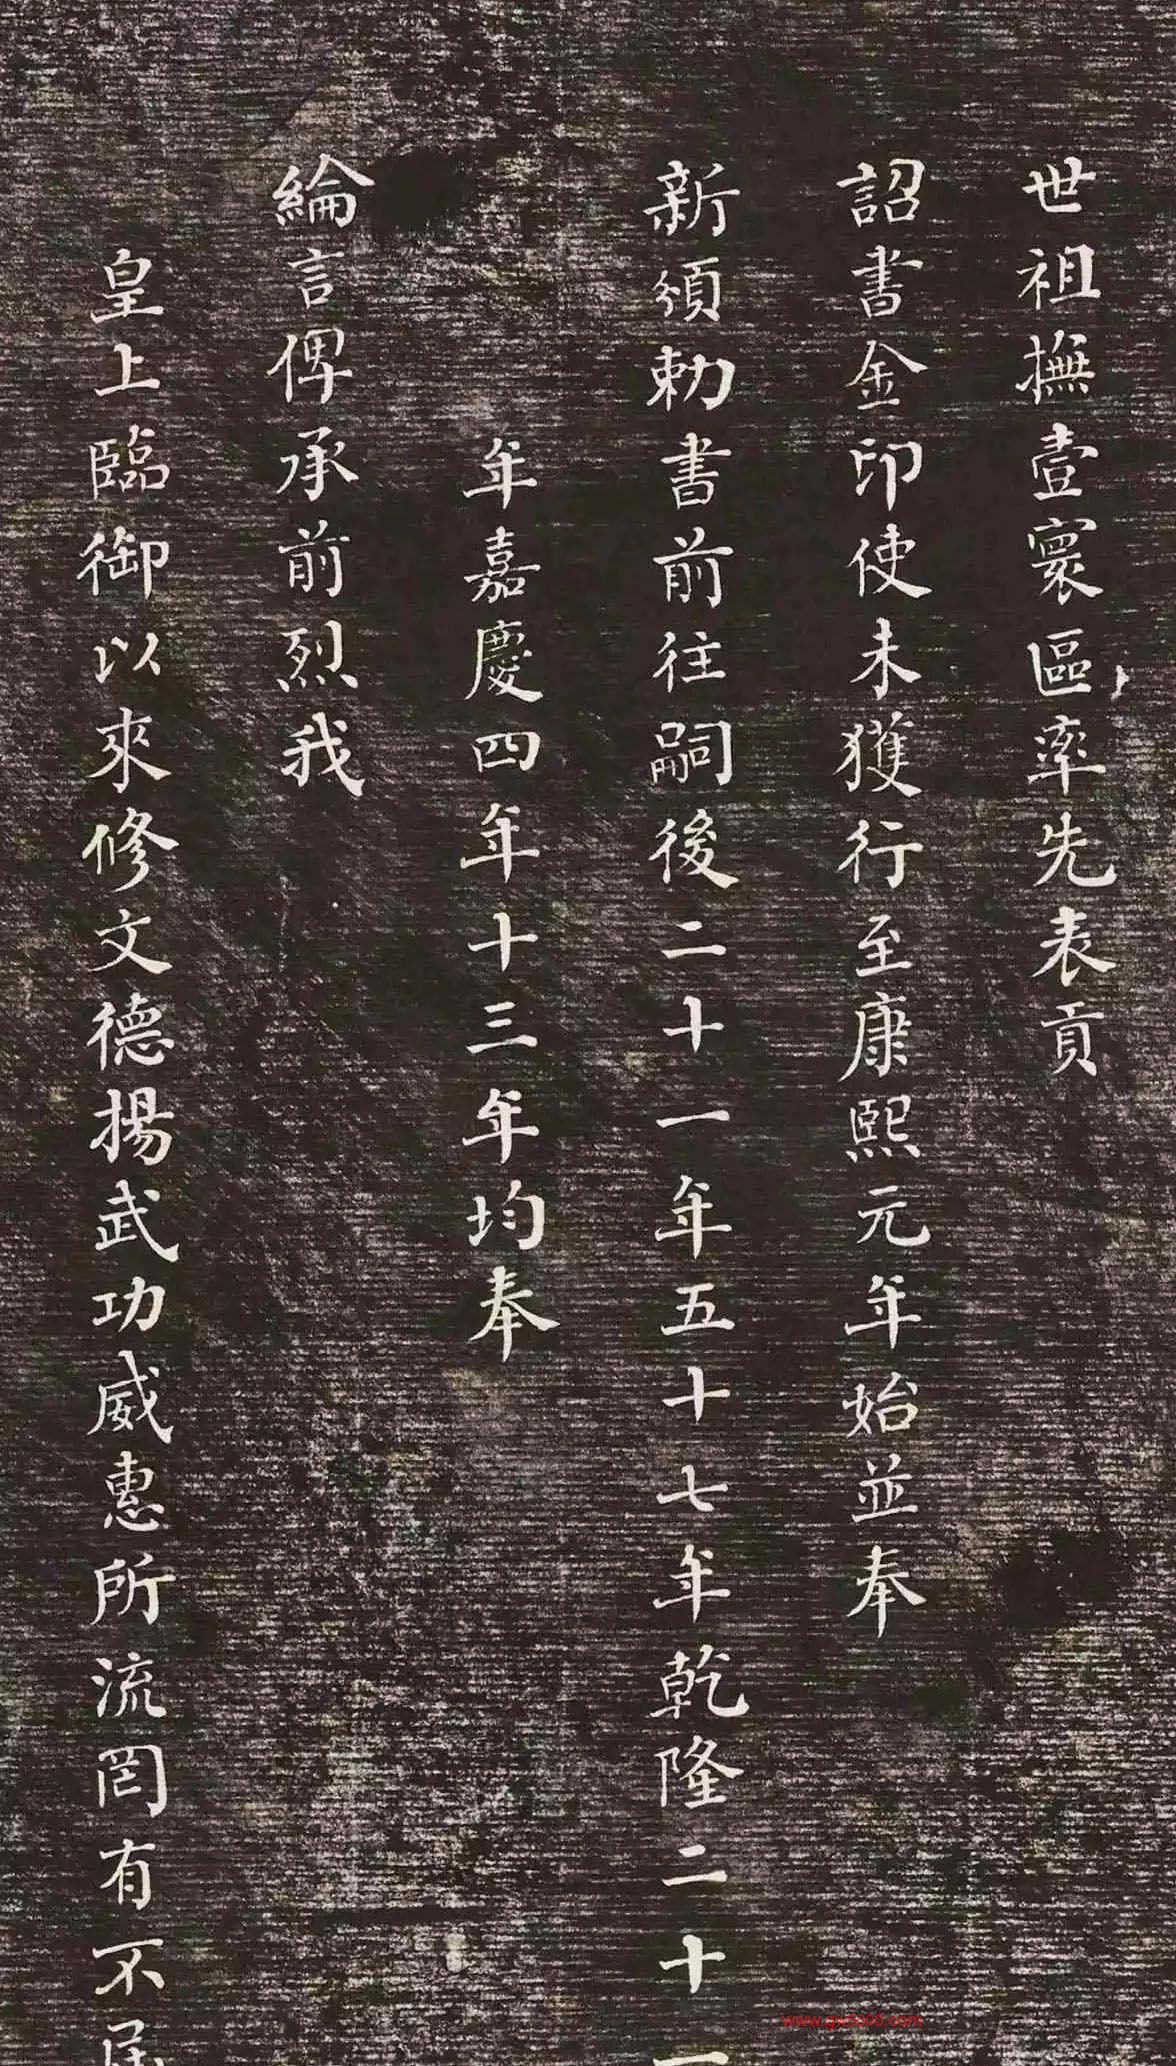 世祖撫壹寰區率先表貢
詔書金印使未獲行至康熙元年始並奉
新頒勅書前往嗣後二十一年五十七年乾隆二十一
年嘉慶四年十三年均奉
綸言俾承前烈我
皇上臨御以來修文德揚武功威惠所流罔有不届